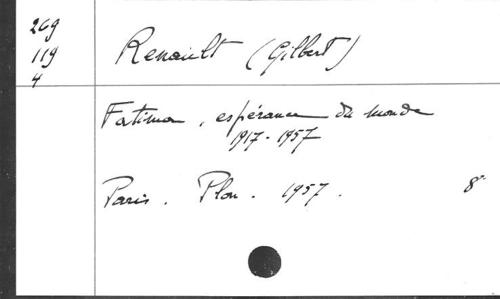 269
119
4
Renault (Gilbert)
Fatima, espérance du monde
1917-1957
Paris. Plon. 1957. 8°